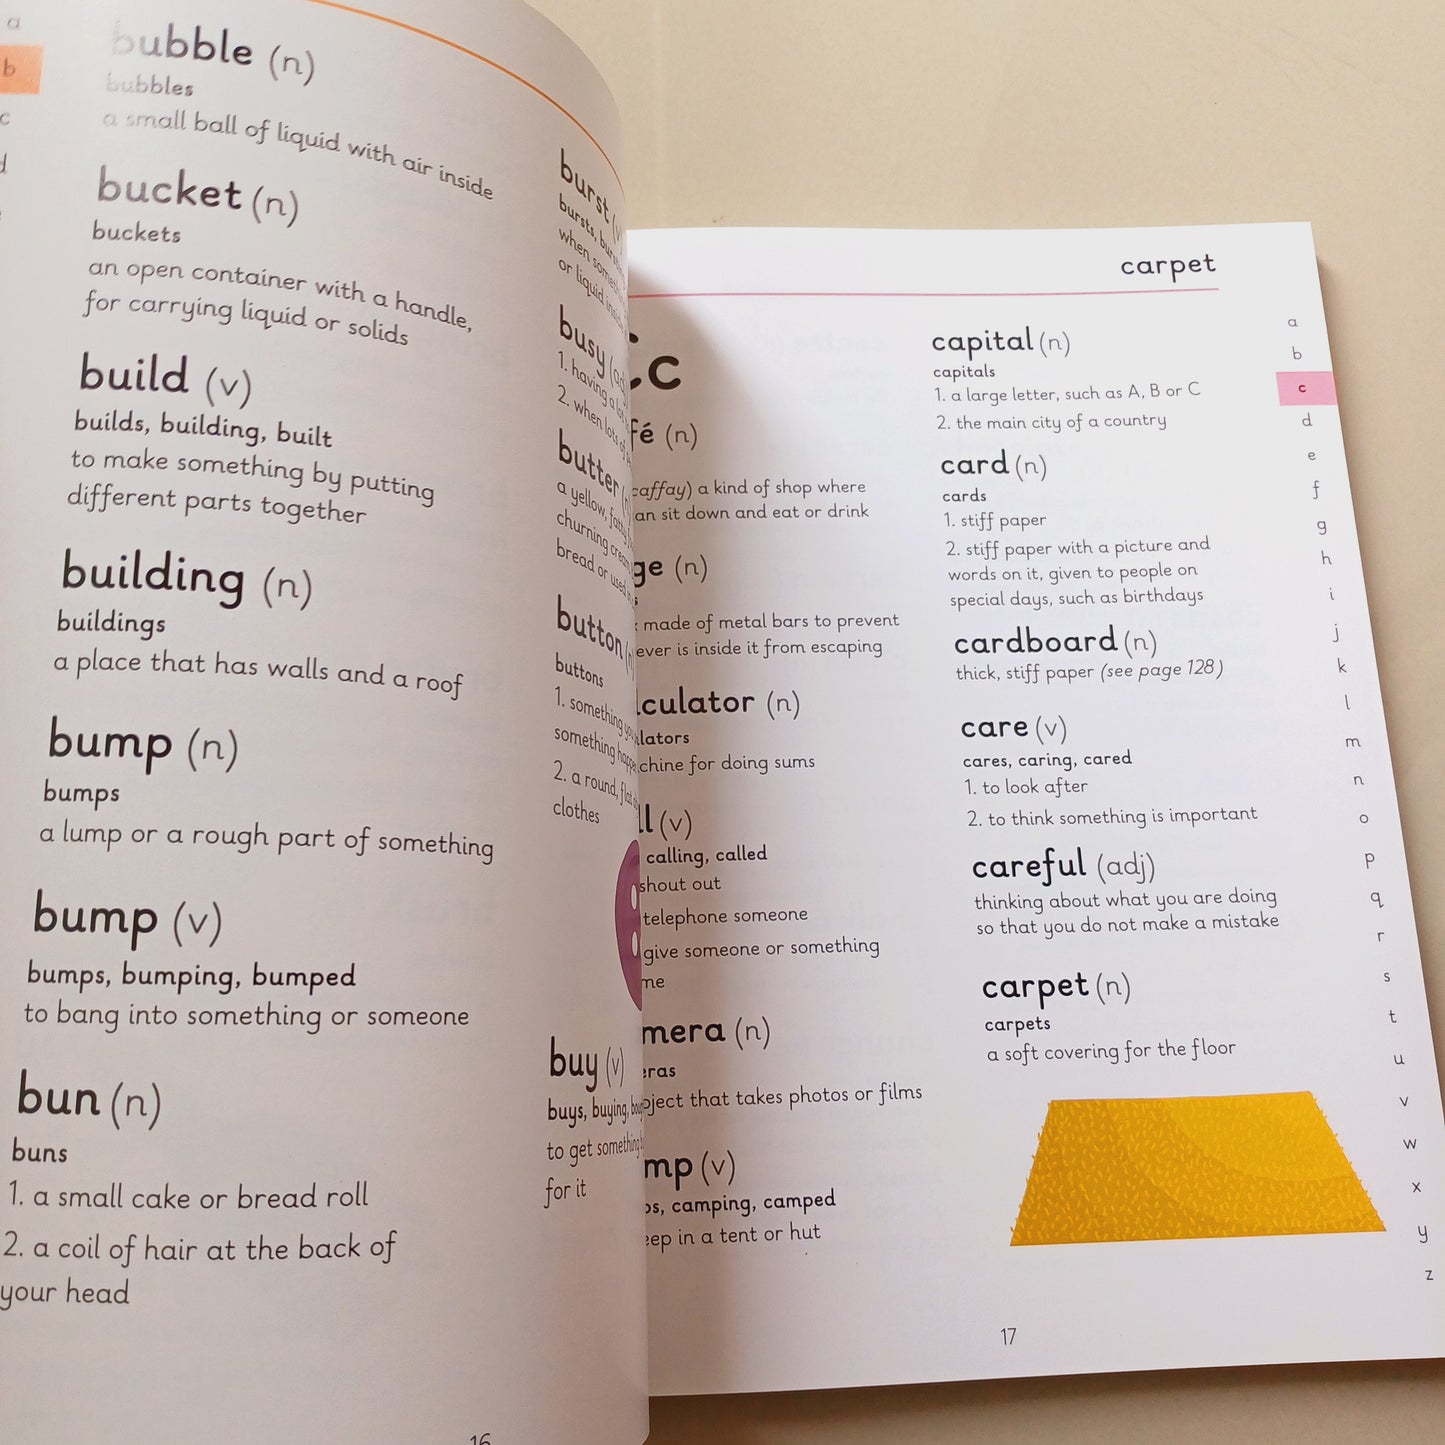 a
b
c
d
bubble (n)
bubbles
a small ball of liquid with air inside
bucket (n)
buckets
an open container with a handle,
for carrying liquid or solids
build (v)
builds, building, built
to make something by putting
different parts together
building (n)
buildings
a place that has walls and a roof
bump (n)
bumps
a lump or a rough part of something
bump (v)
bumps, bumping, bumped
to bang into something or someone
bun (n)
buns
1. a small cake or bread roll
2. a coil of hair at the back of
your head
burst
bursts,
when
or liquid
busy
1. having a lot
2. when lots of
butter
a yellow, fatty
churning cream
bread or used
button (n)
buttons
1. something you
something happen
2. a round, flat
clothes
buy (v)
buys, buying,
to get something
for it
16
carpet
c
(n)
a kind of shop where
sit down and eat or drink
(n)
made of metal bars to prevent
is inside it from escaping
(n)
for doing sums
(v)
calling, called
shout out
telephone someone
give someone or something
(n)
that takes photos or films
(v)
camping, camped
in a tent or hut
capital (n)
capitals
1. a large letter, such as A, B or C
2. the main city of a country
card (n)
cards
1. stiff paper
2. stiff paper with a picture and
words on it, given to people on
special days, such as birthdays
cardboard (n)
thick, stiff paper (see page 128)
care (v)
cares, caring, cared
1. to look after
2. to think something is important
careful (adj)
thinking about what you are doing
so that you do not make a mistake
carpet (n)
carpets
a soft covering for the floor
17
a
b
c
d
e
f
g
h
i
j
k
l
m
n
o
p
q
r
s
t
u
v
w
x
y
z